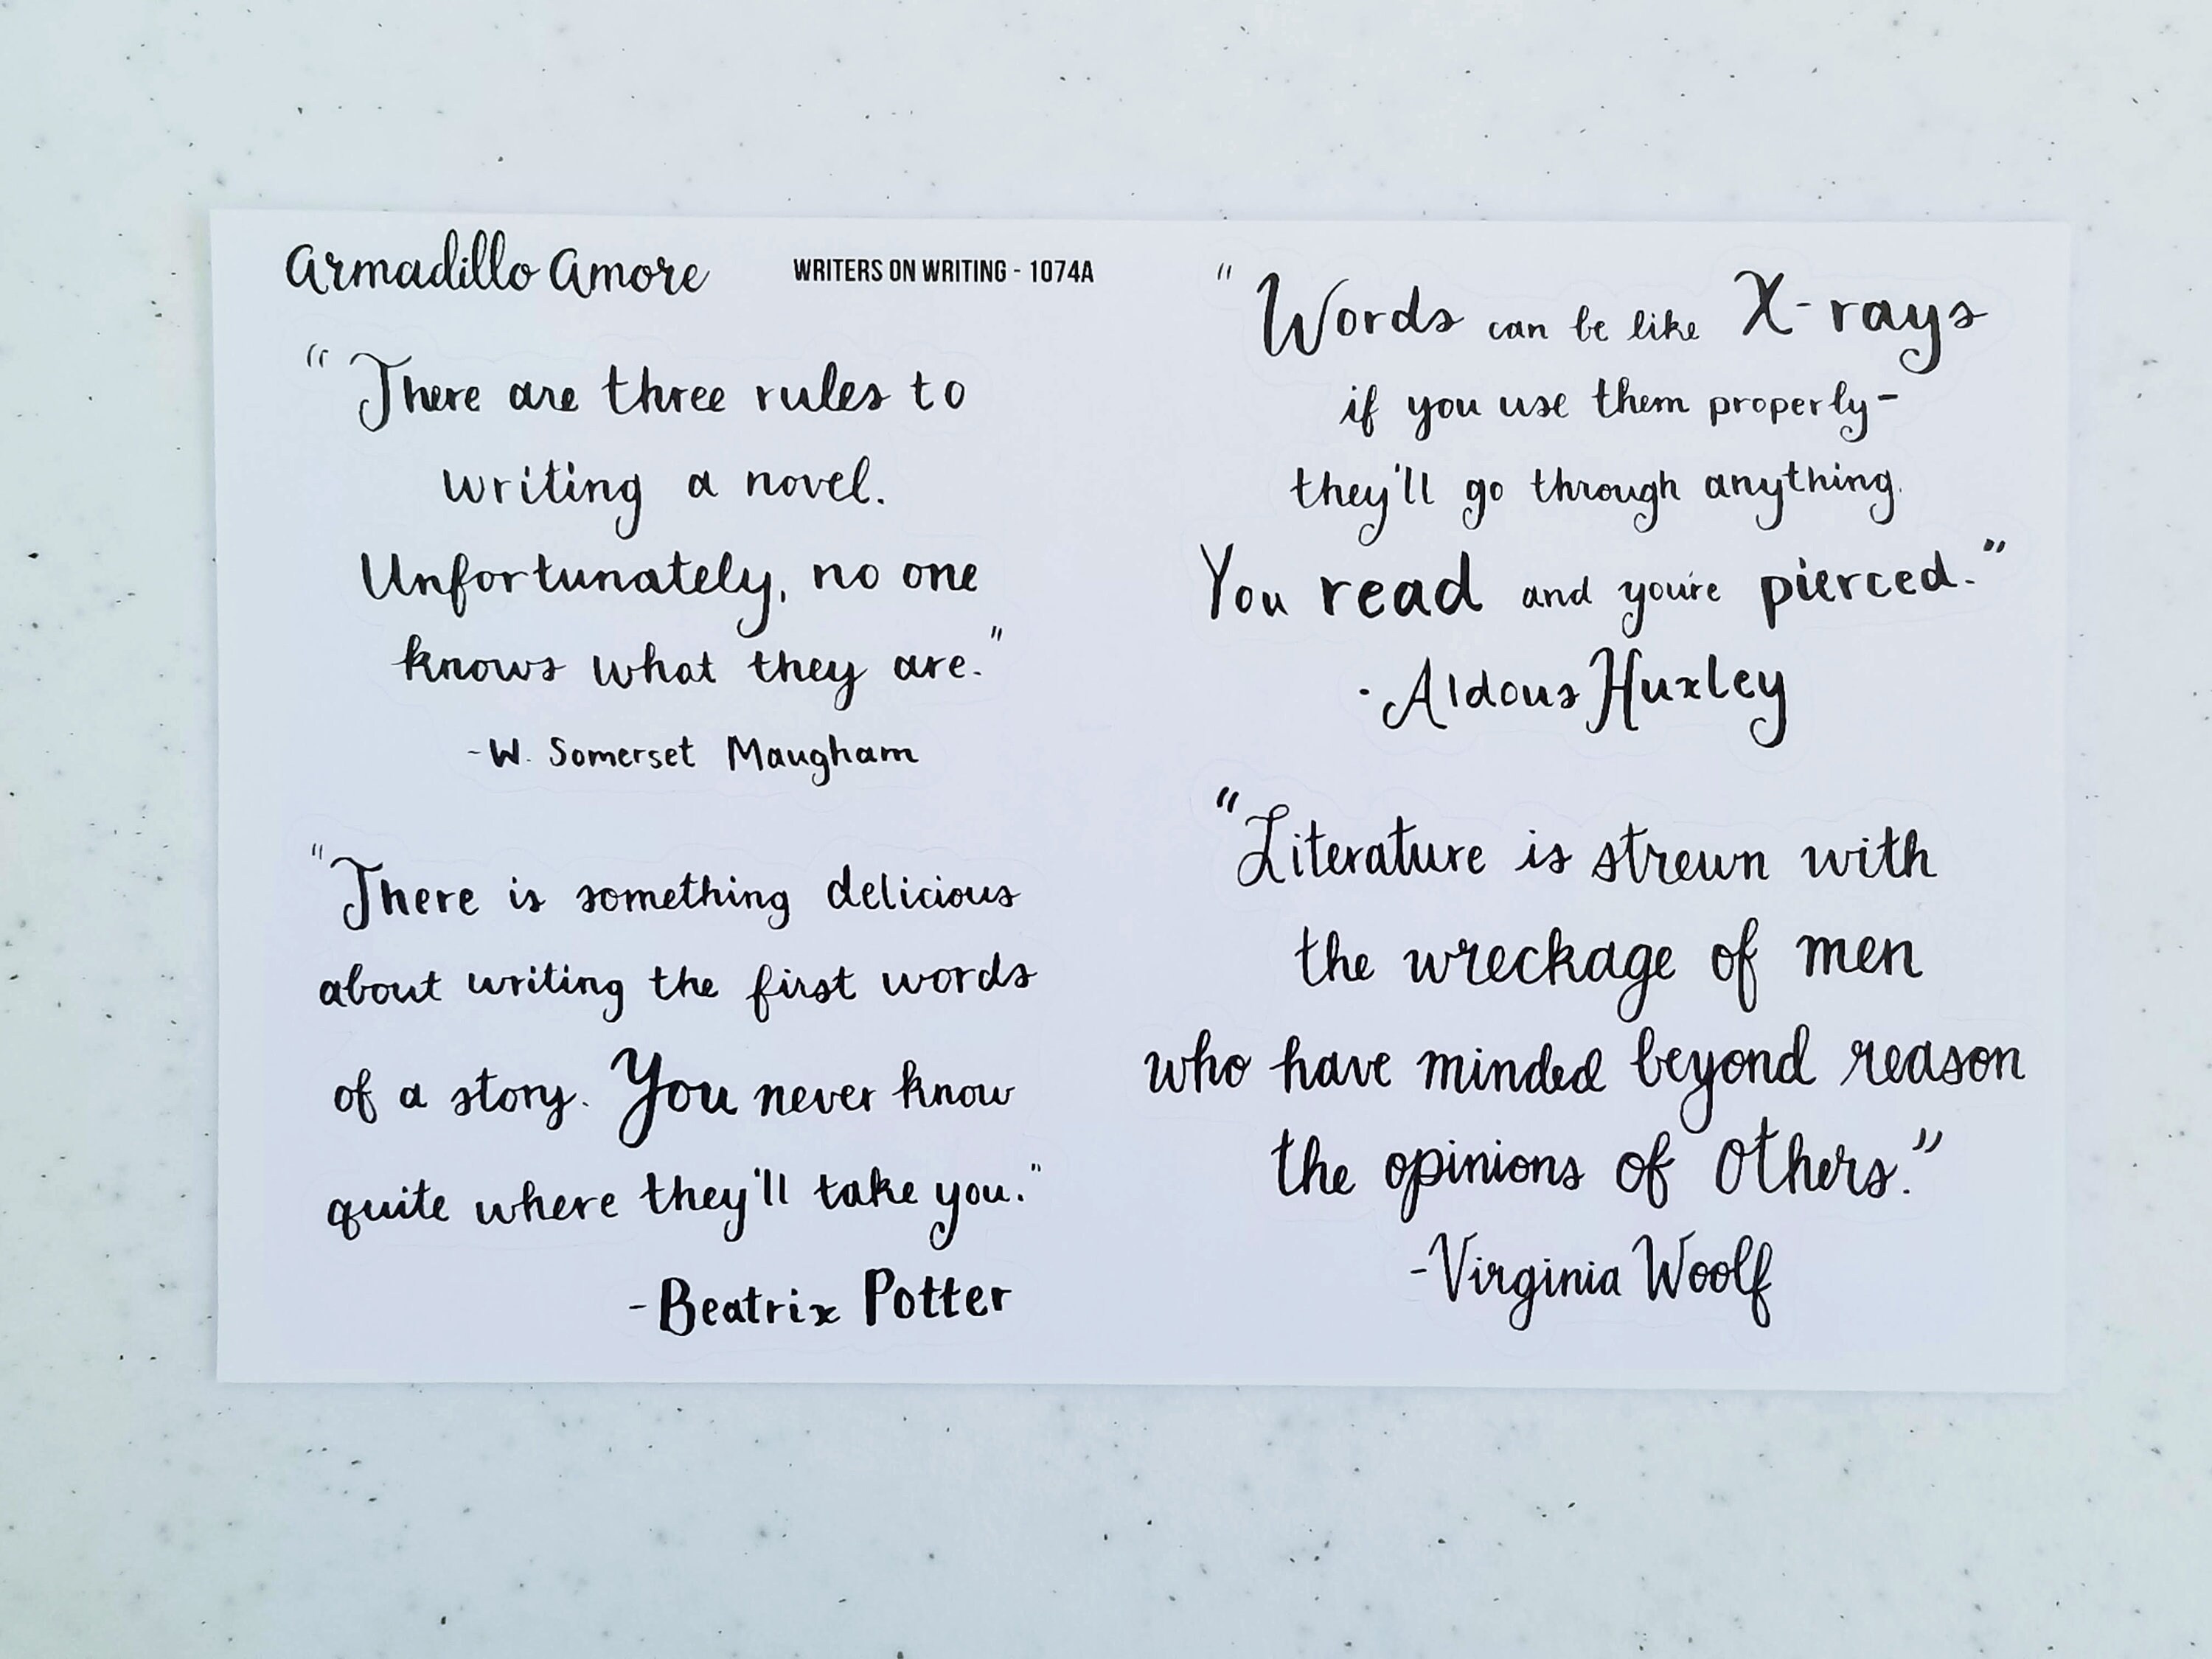 Armadillo Amore
WRITERS ON WRITING - 1074A
"There are three rules to
writing a novel.
Unfortunately, no one
knows what they are."
-W. Somerset Maugham
"There is something delicious
about writing the first words
of a story. You never know
quite where they'll take you."
-Beatrix Potter
"Words can be like X-rays
if you use them properly-
they'll go through anything.
You read and you're pierced."
-Aldous Huxley
"Literature is strewn with
the wreckage of men
who have minded beyond reason
the opinions of others."
-Virginia Woolf